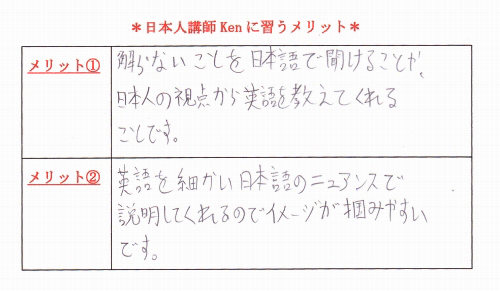 ＊日本人講師 Ken に習うメリット＊
メリット①
解らないことを日本語で聞けることか、
日本人の視点から英語を教えてくれる
ことです。
メリット②
英語を細かい日本語のニュアンスで
説明してくれるのでイメージが掴みやすい
です。